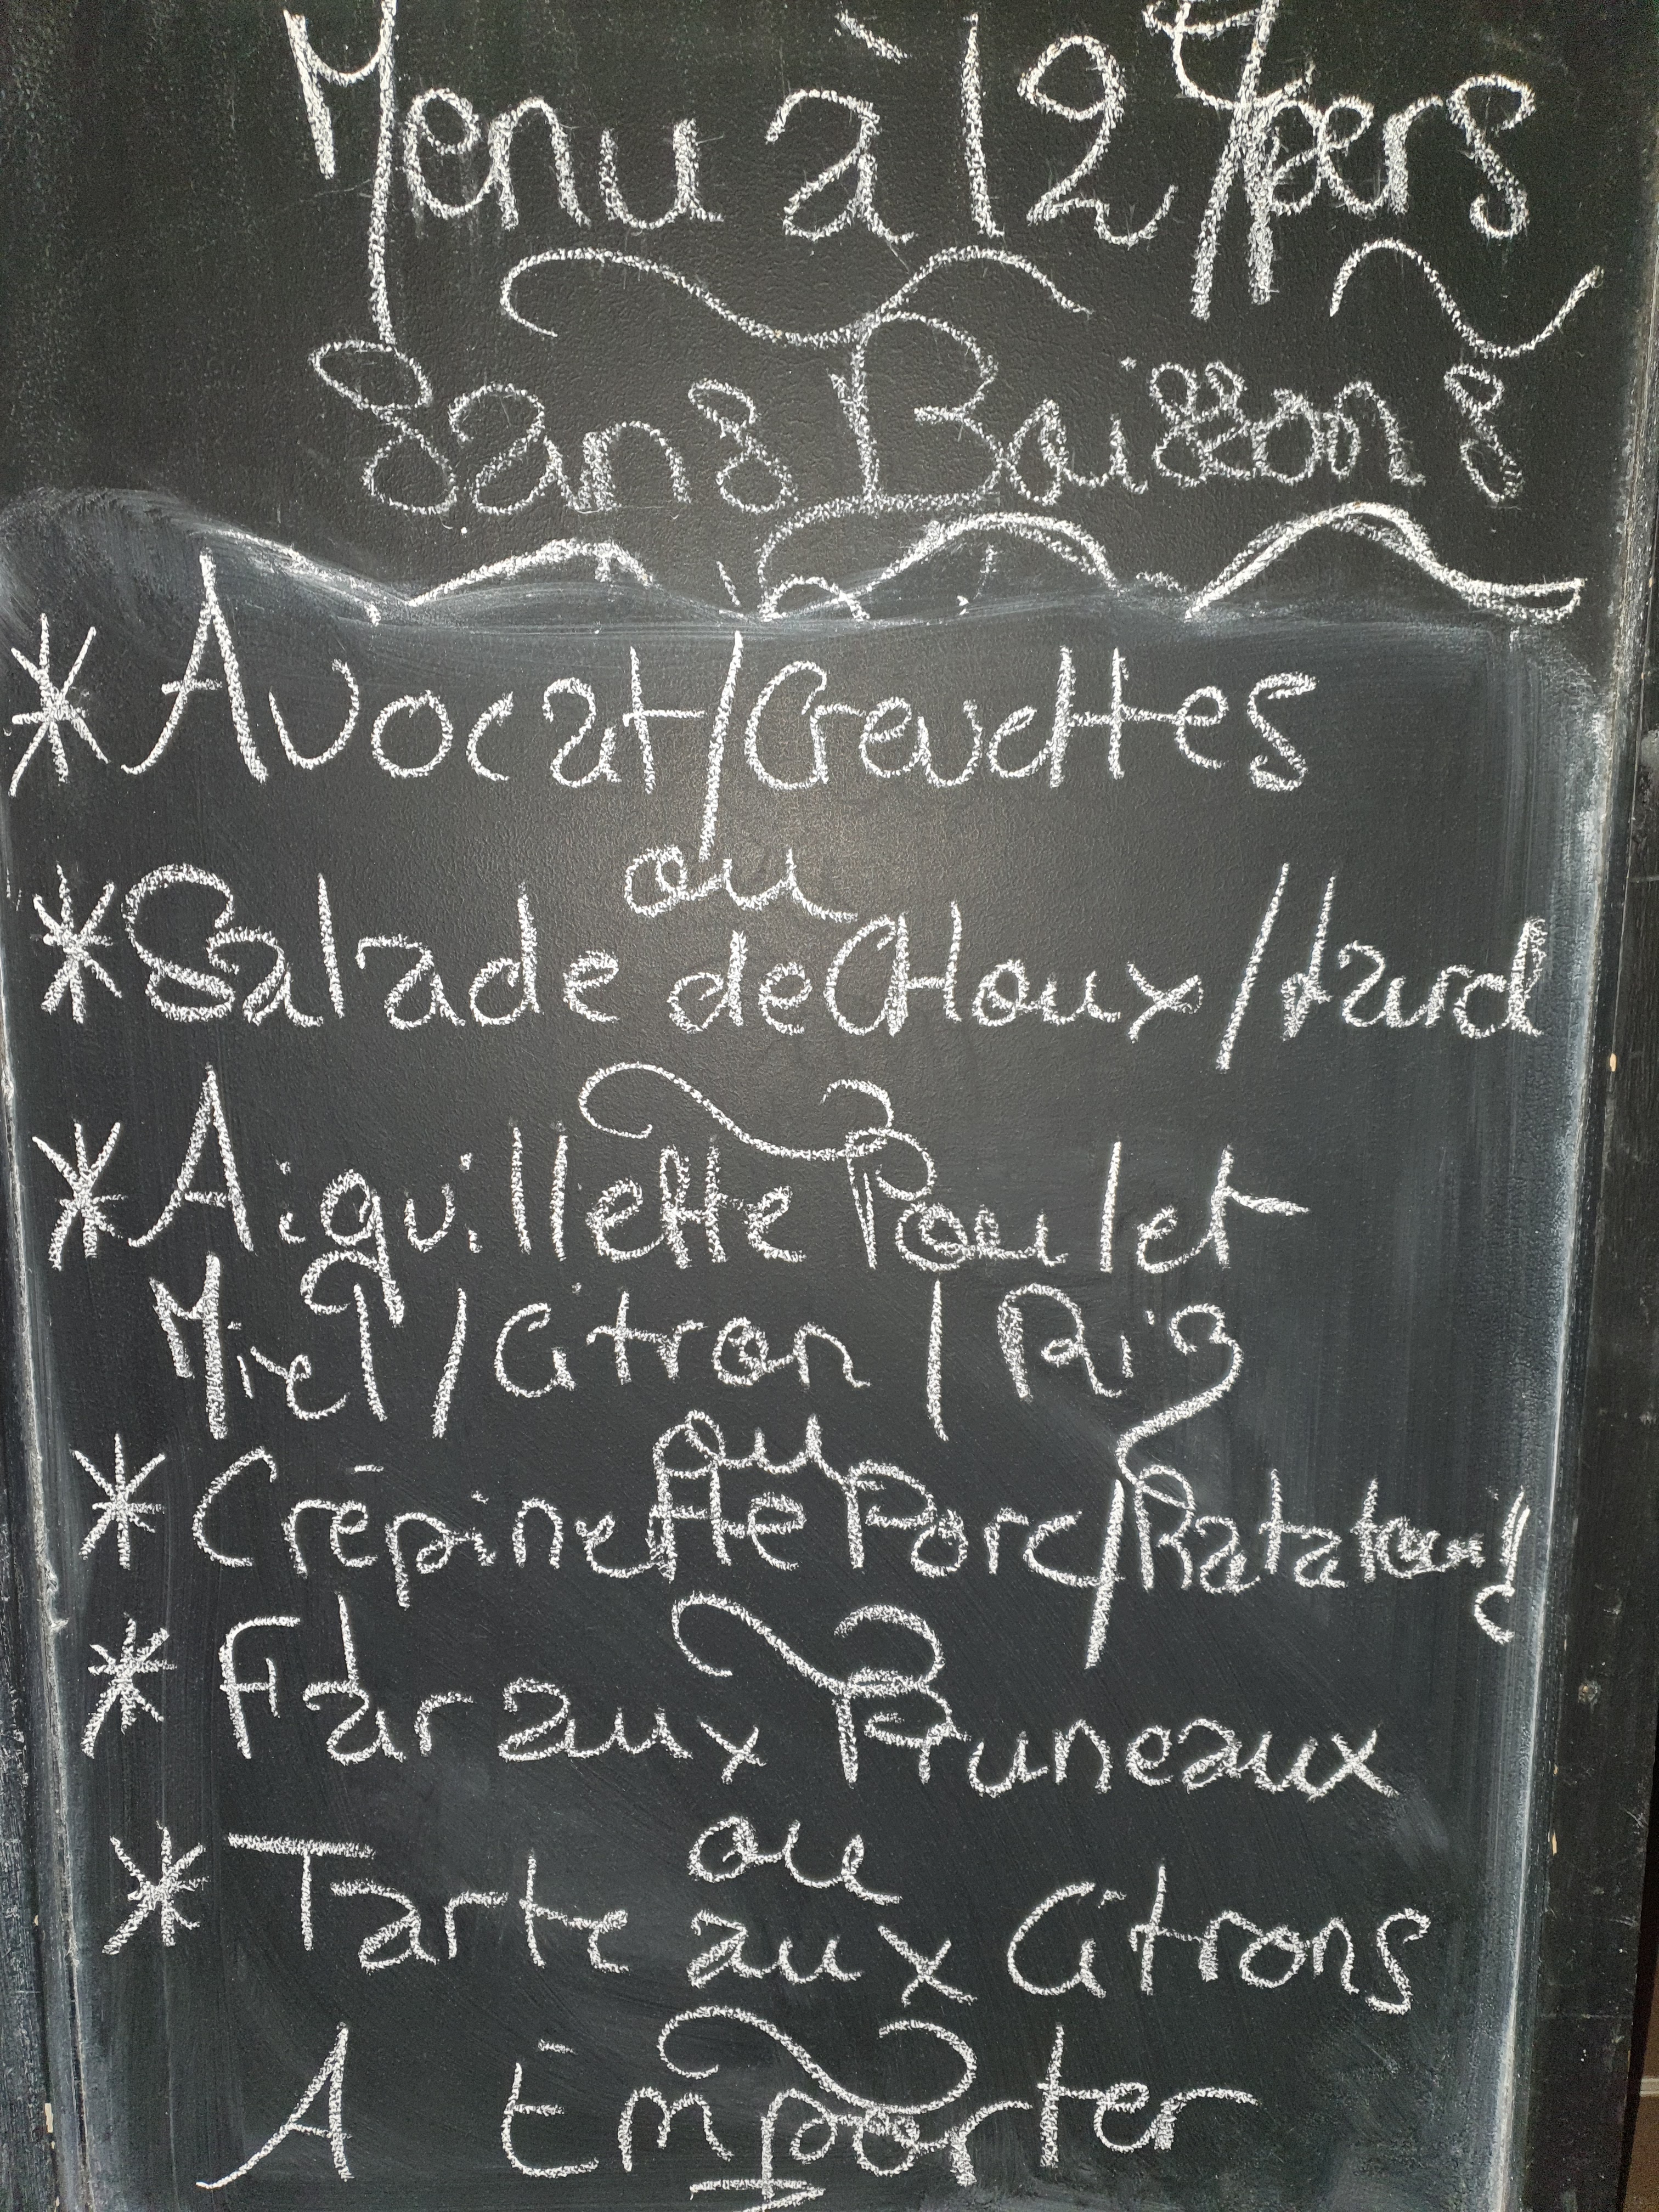 Menu à 12€/pers
Sans Boissons
* Avocat/Crevettes
ou
* Salade de CHoux/Lard
* Aiguillette Poulet
Miel/Citron/Riz
ou
* Crépinette Porc/Ratatouil
* Far aux Pruneaux
ou
* Tarte aux Citrons
A Emporter